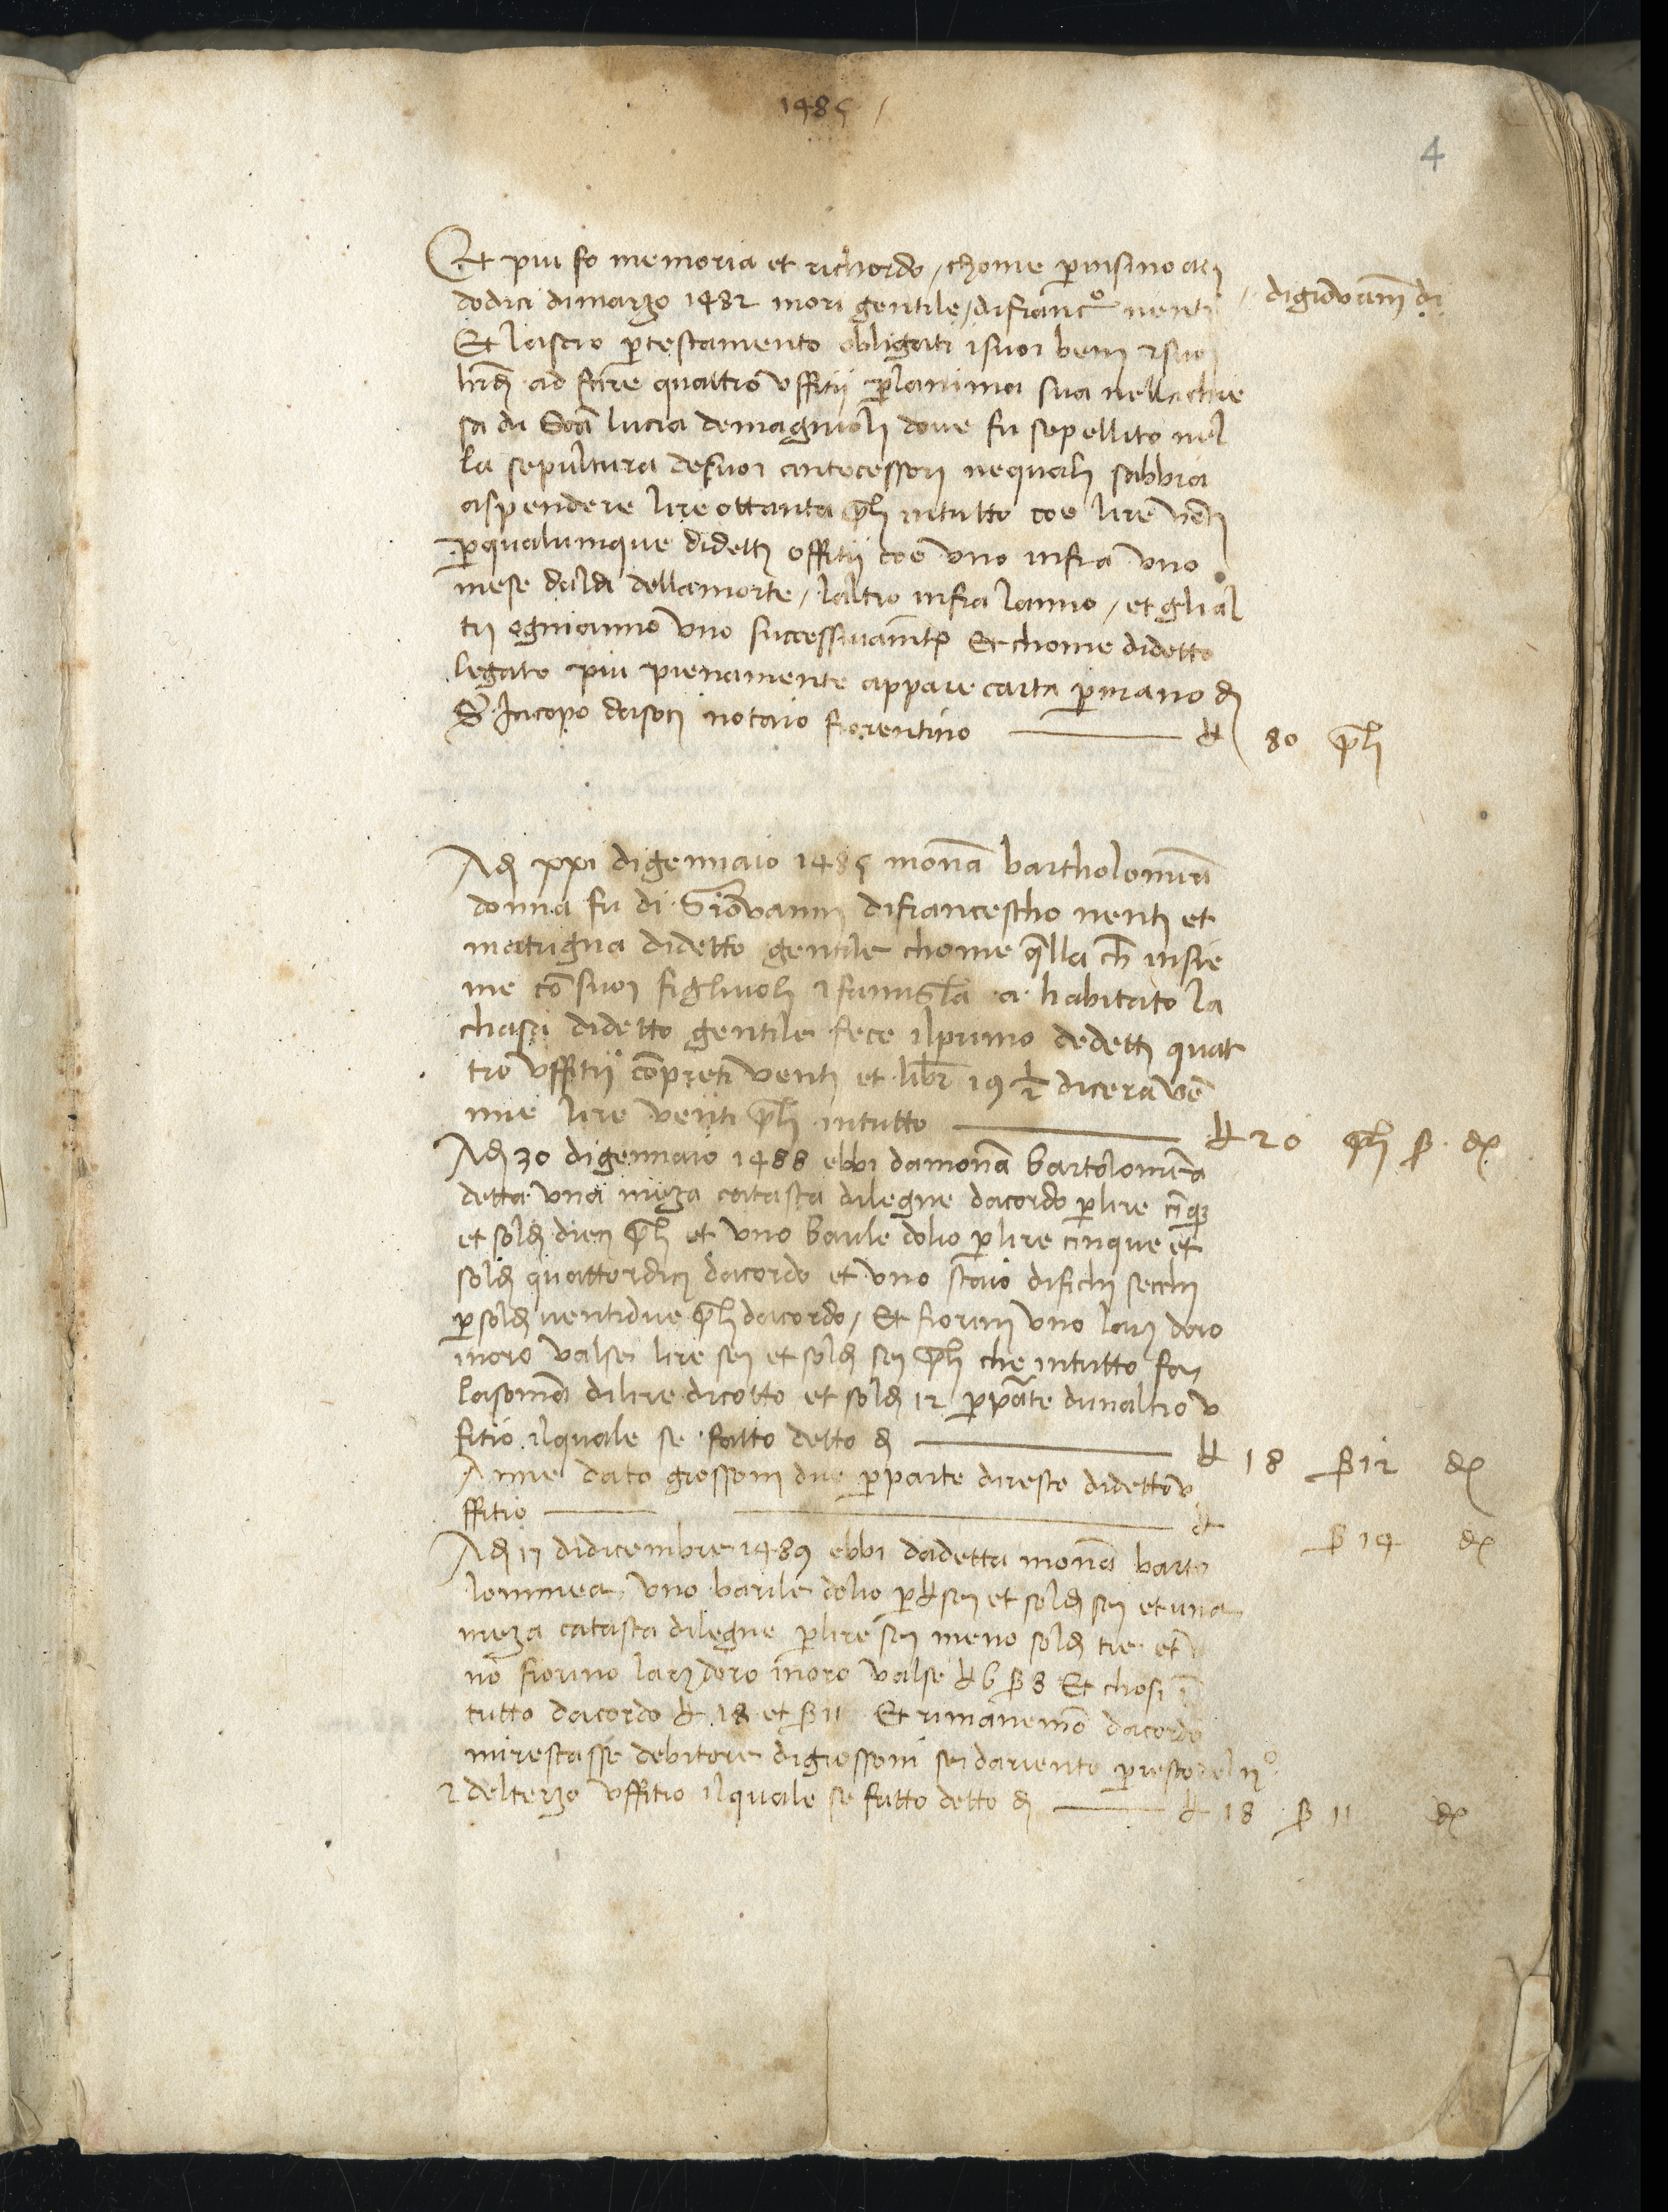 1485
4
Et piu fo memoria et richordo / chome p̄ insino a di
dodici di marzo 1482 mori gentile / di franc̊o nenti / di giovanni di
Et lascio p̄ testamento obligati i suoi beni & suoi
hrdi ad fare quattro uffitii p̄ lanima sua nella chie
sa di Scā lucia de magnioli dove fu sepellito nel
la sepultura de suoi antecessori ne quali sabbia
a spendere lire ottanta pli in tutto coe lire venti
p̄ qualunque di detti offitii coe uno infra uno
mese dal di della morte / laltro infra lanno / et gli al
tri ogni anno uno successivamte Et chome di detto
legato piu pienamente appare carta p̄ mano di
S. Jacopo da soci notaio fiorentino — £ 80 pli
A di xxi di gennaio 1485 monā bartholomea
donna fu di Giovanni di francescho nenti et
matrigna di detto gentile chome q̄lla ch̄ insie
me cō suoi figliuoli & famiglā a habitato la
chasa di detto gentile fece il primo de detti quat
tro uffitii cō preti venti et libr̄ 19 ½ di cera vē
nne lire venti pli in tutto — £ 20 pli s. d
A di 30 di gennaio 1488 ebbi da monā bartolomea
detta una meza catasta di legne dacordo p̄ lire cinq̄
et soldi dieci pli et uno barile dolio p̄ lire cinque et
soldi quattordici dacordo et uno staio di fichi secchi
p̄ soldi ventidue pli dacordo / Et fiorini uno lari doro
in oro valse lire sei et soldi sei pli che in tutto fan
la somā di lire diciotto et soldi 12 p̄ p̄ate dunaltro u
fitio il quale se fatto detto di — £ 18 s 12 d
A mme dato grossoni due p̄ parte di resto di detto u
ffitio — £ s 14 d
A di 17 di dicembre 1489 ebbi da detta monā barto
lommea uno barile dolio p̄ £ sei et soldi sei et una
meza catasta di legne p̄ lire sei meno soldi tre et u
no fiorino lari doro in oro valse £ 6 s 8 Et chosi ī
tutto dacordo £ 18 et s 11 Et rimanemō dacordo
mi restasse debitore di grossoni sei dariento p̄ resto del 2̊
& del terzo uffitio il quale se fatto detto di — £ 18 s 11 d